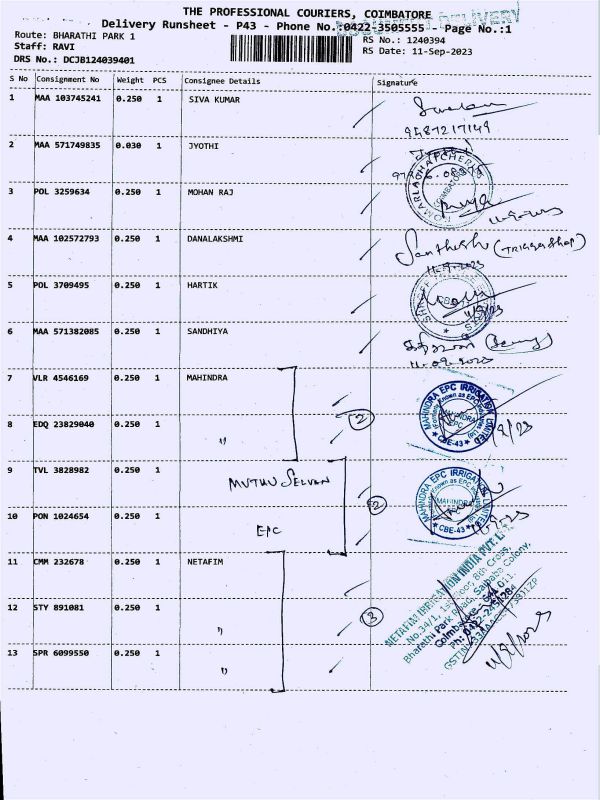 THE PROFESSIONAL COURIERS, COIMBATORE
DELIVERY
Delivery Runsheet - P43 - Phone No.:0422-3505555 - Page No.:1
Route: BHARATHI PARK 1
RS No.: 1240394
Staff: RAVI
RS Date: 11-Sep-2023
DRS No.: DCJB124039401
S No Consignment No Weight PCS Consignee Details Signature
1 MAA 103745241 0.250 1 SIVA KUMAR
9487217149
2 MAA 571749835 0.030 1 JYOTHI
3 POL 3259634 0.250 1 MOHAN RAJ
4 MAA 102572793 0.250 1 DANALAKSHMI
11.9.2023
5 POL 3709495 0.250 1 HARTIK
6 MAA 571382085 0.250 1 SANDHIYA
11.09.2023
7 VLR 4546169 0.250 1 MAHINDRA
2
MAHINDRA EPC IRRIGATION LIMITED
MAHINDRA EPC
CBE-43
8 EDQ 23829040 0.250 1 "
9 TVL 3828982 0.250 1
MUTHU SELVAN
2
MAHINDRA EPC IRRIGATION LIMITED
MAHINDRA
CBE-43
10 PON 1024654 0.250 1
EPC
11 CMM 232678 0.250 1 NETAFIM
NETAFIM IRRIGATION INDIA PVT. LTD
No.34/1, 1st Floor, 8th Cross,
Bharathi Park Road, Saibaba Colony,
12 STY 891081 0.250 1 "
3
13 SPR 6099550 0.250 1 "